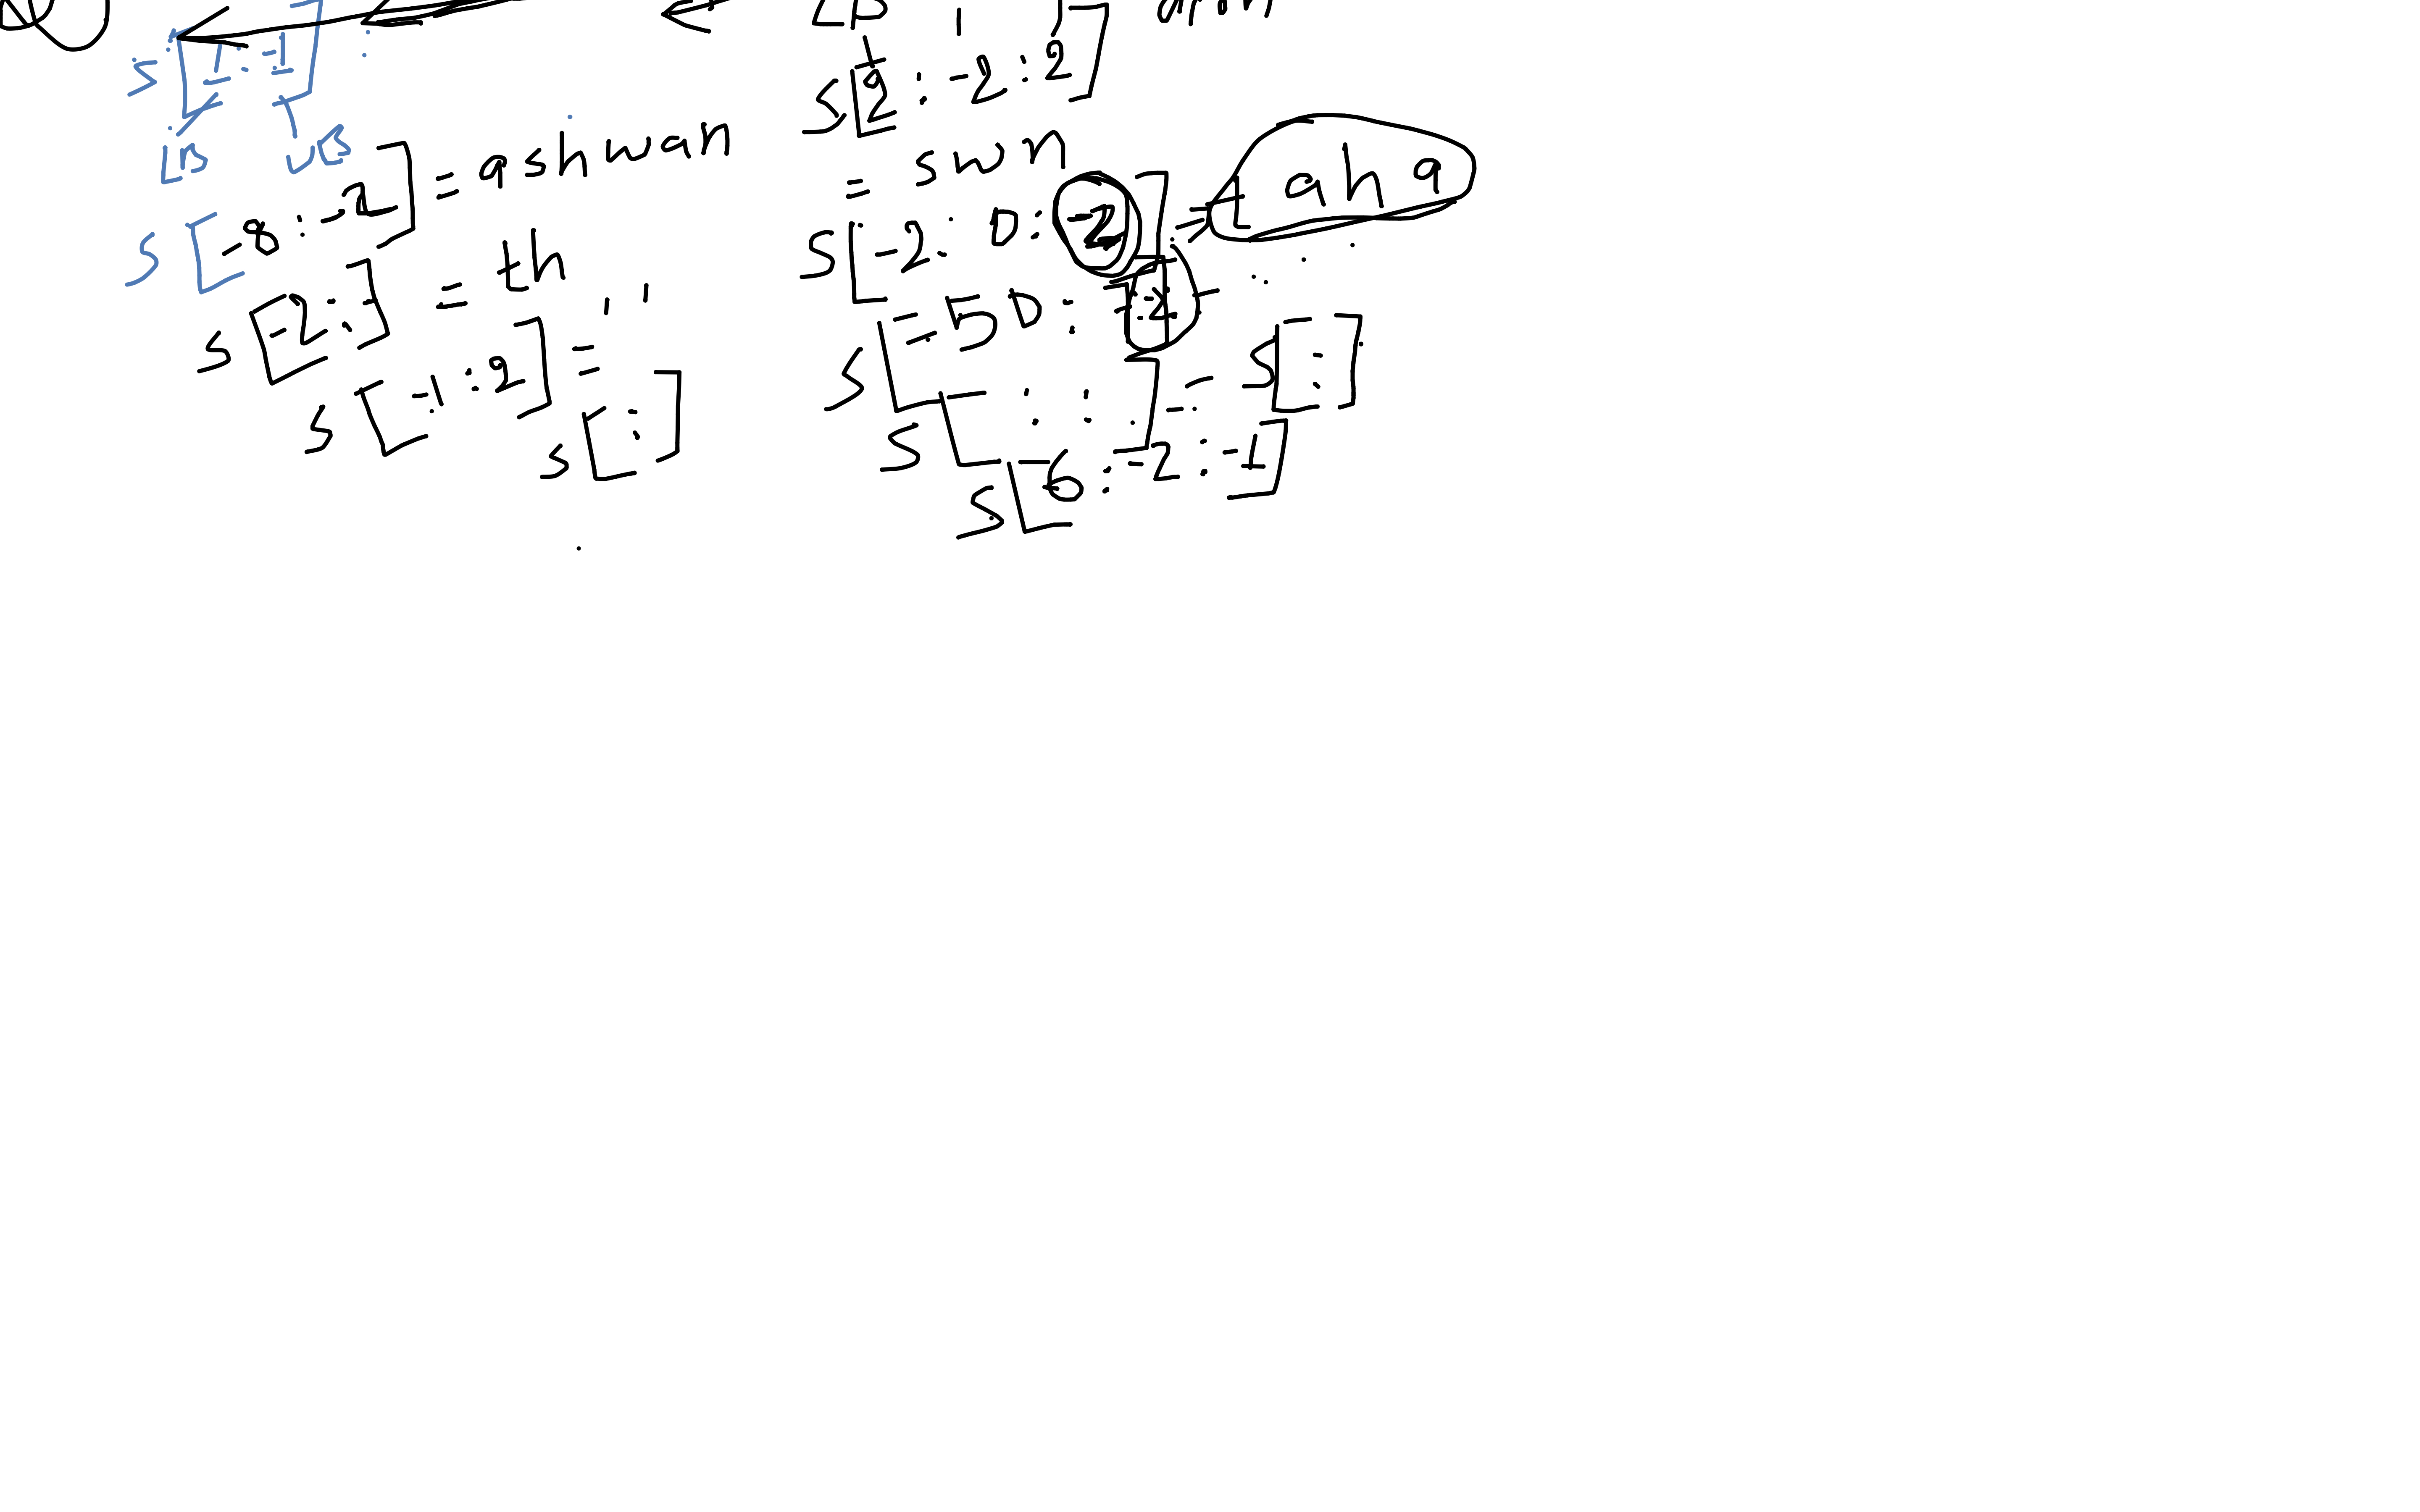 S[1:-1]
LB UB
S[-8:-2] = ashwan
S[-2:] = th
S[-1:2] = ''
S[:]
S[2:-2:2]
= swn
S[-2:0:-2] = taha
S[-50:
S[::] = S[:]
S[-6:-2:-1]